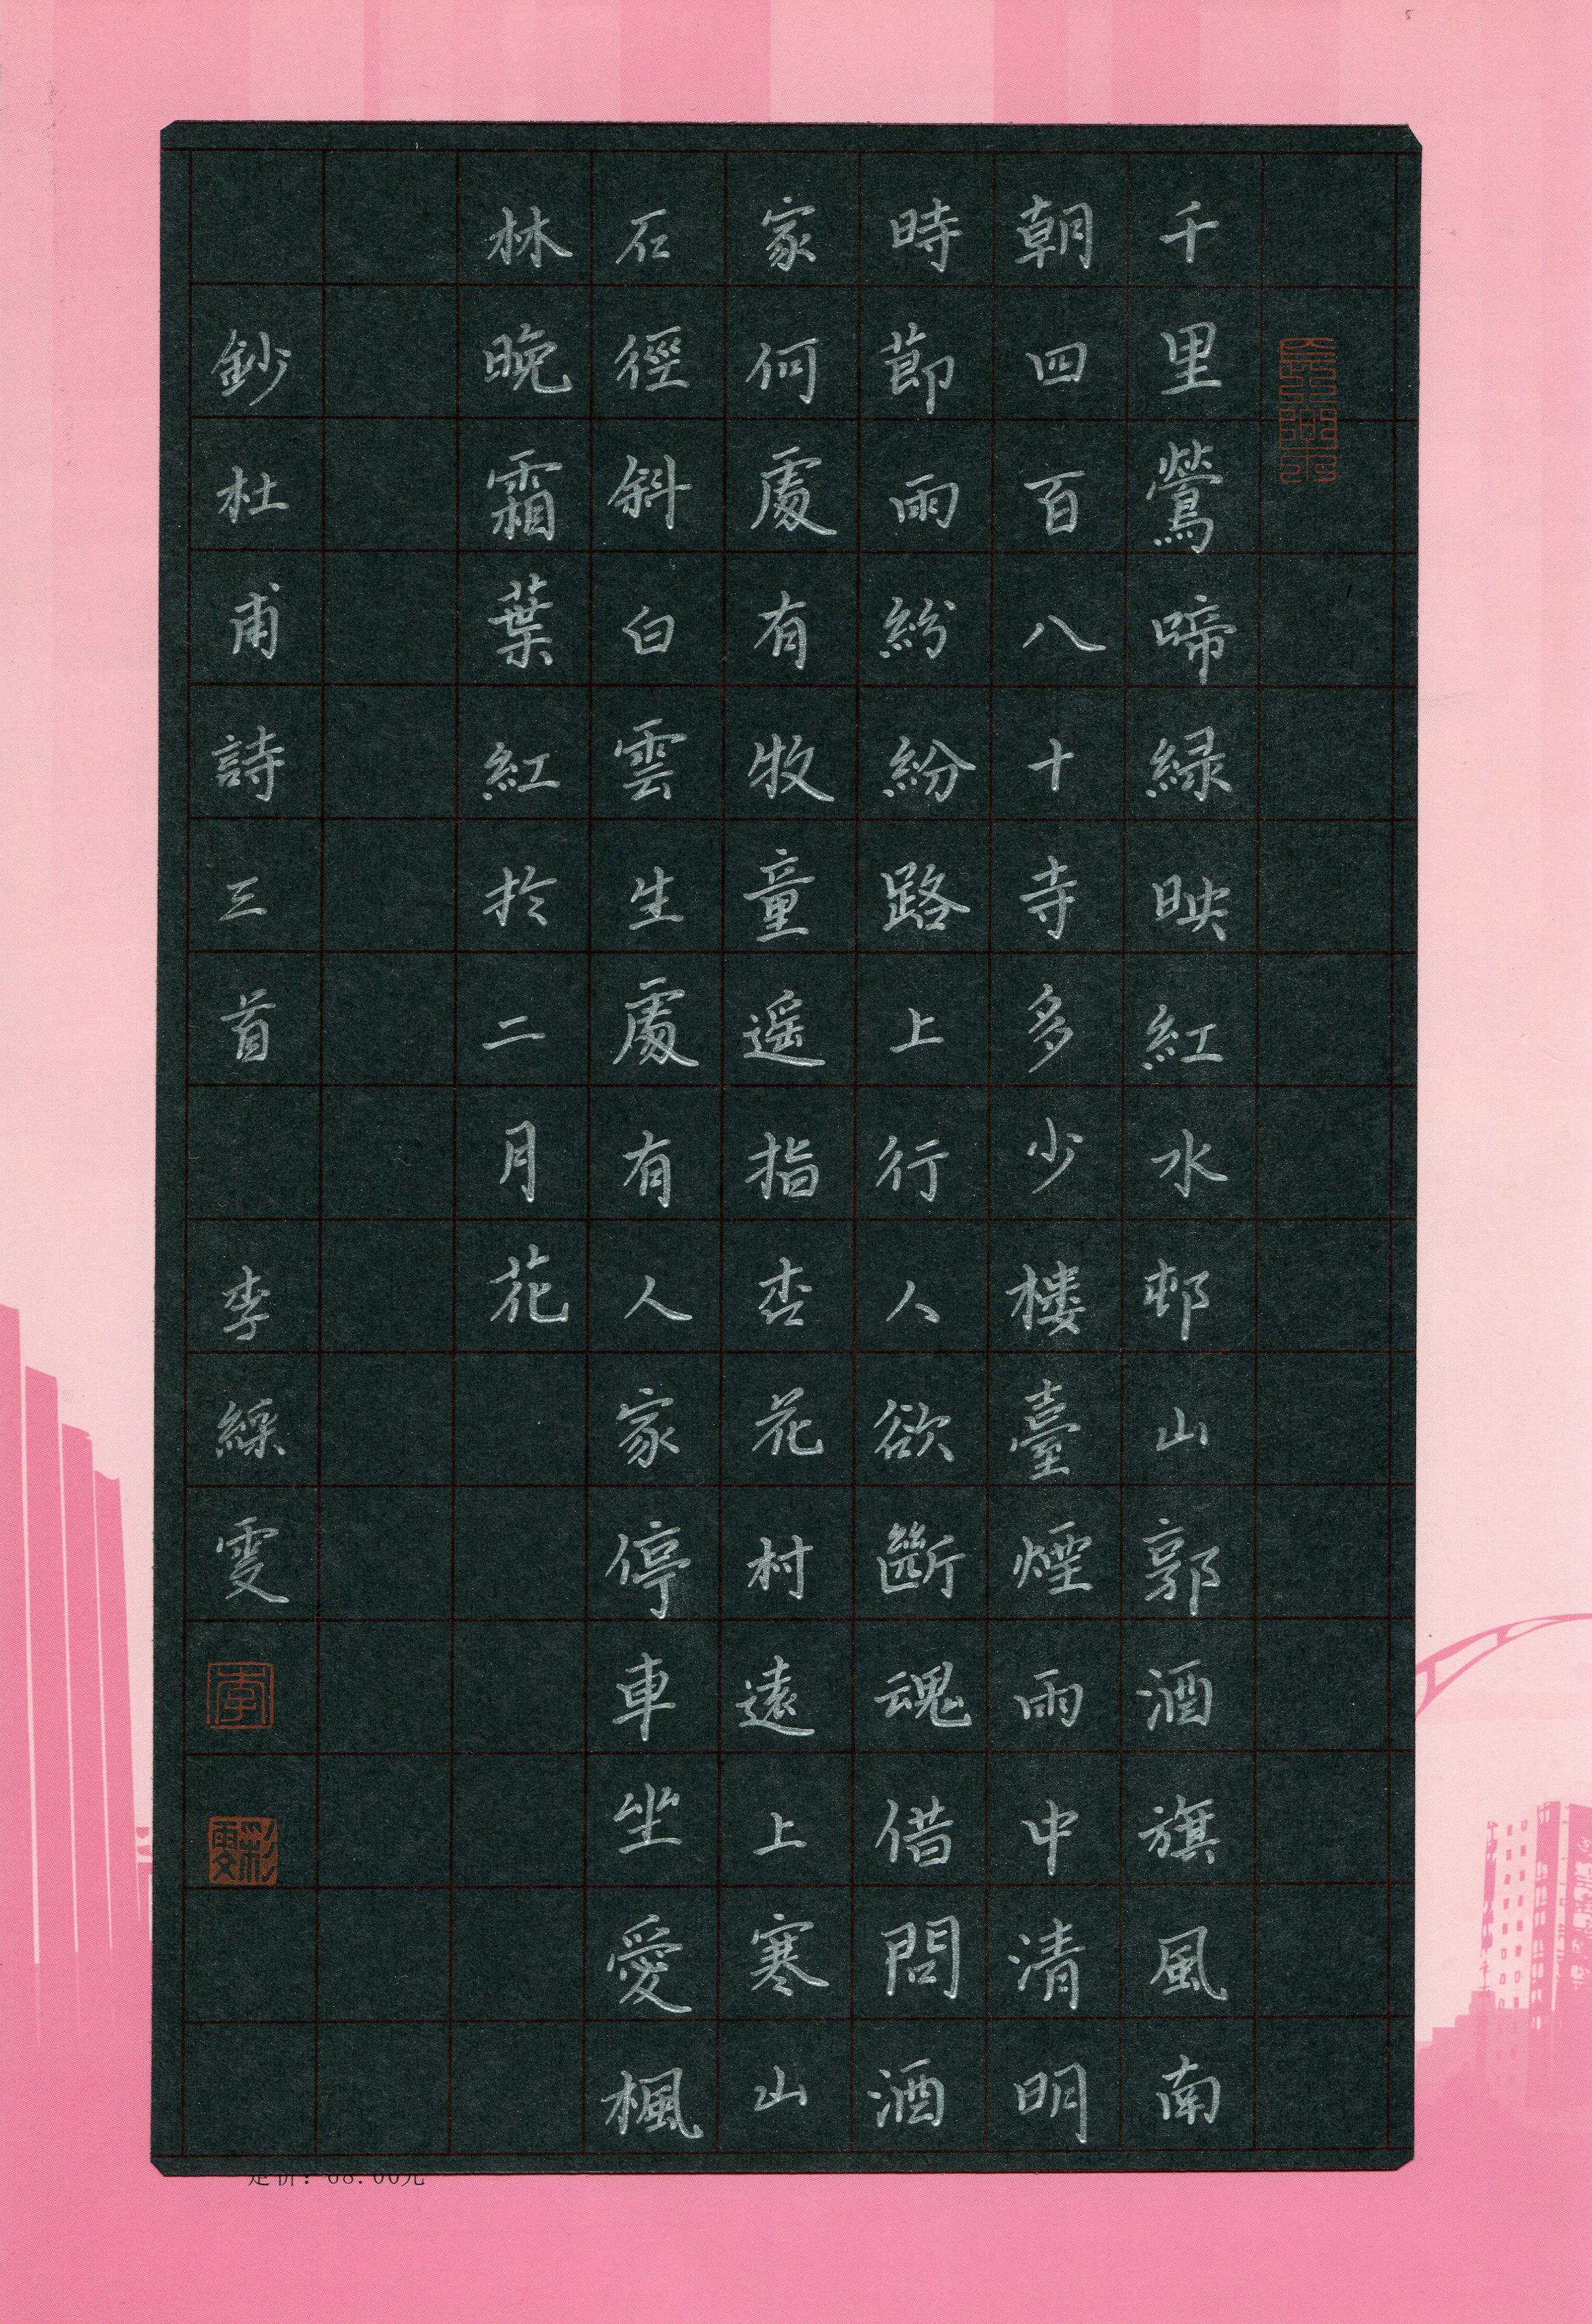 千里鶯啼緑映紅水邨山郭酒旗風南
朝四百八十寺多少楼臺煙雨中清明
時節雨紛紛路上行人欲斷魂借問酒
家何處有牧童遥指杏花村遠上寒山
石徑斜白雲生處有人家停車坐愛楓
林晚霜葉紅於二月花
鈔杜甫詩三首 李綵雯
李
彩雯
定价：68.00元